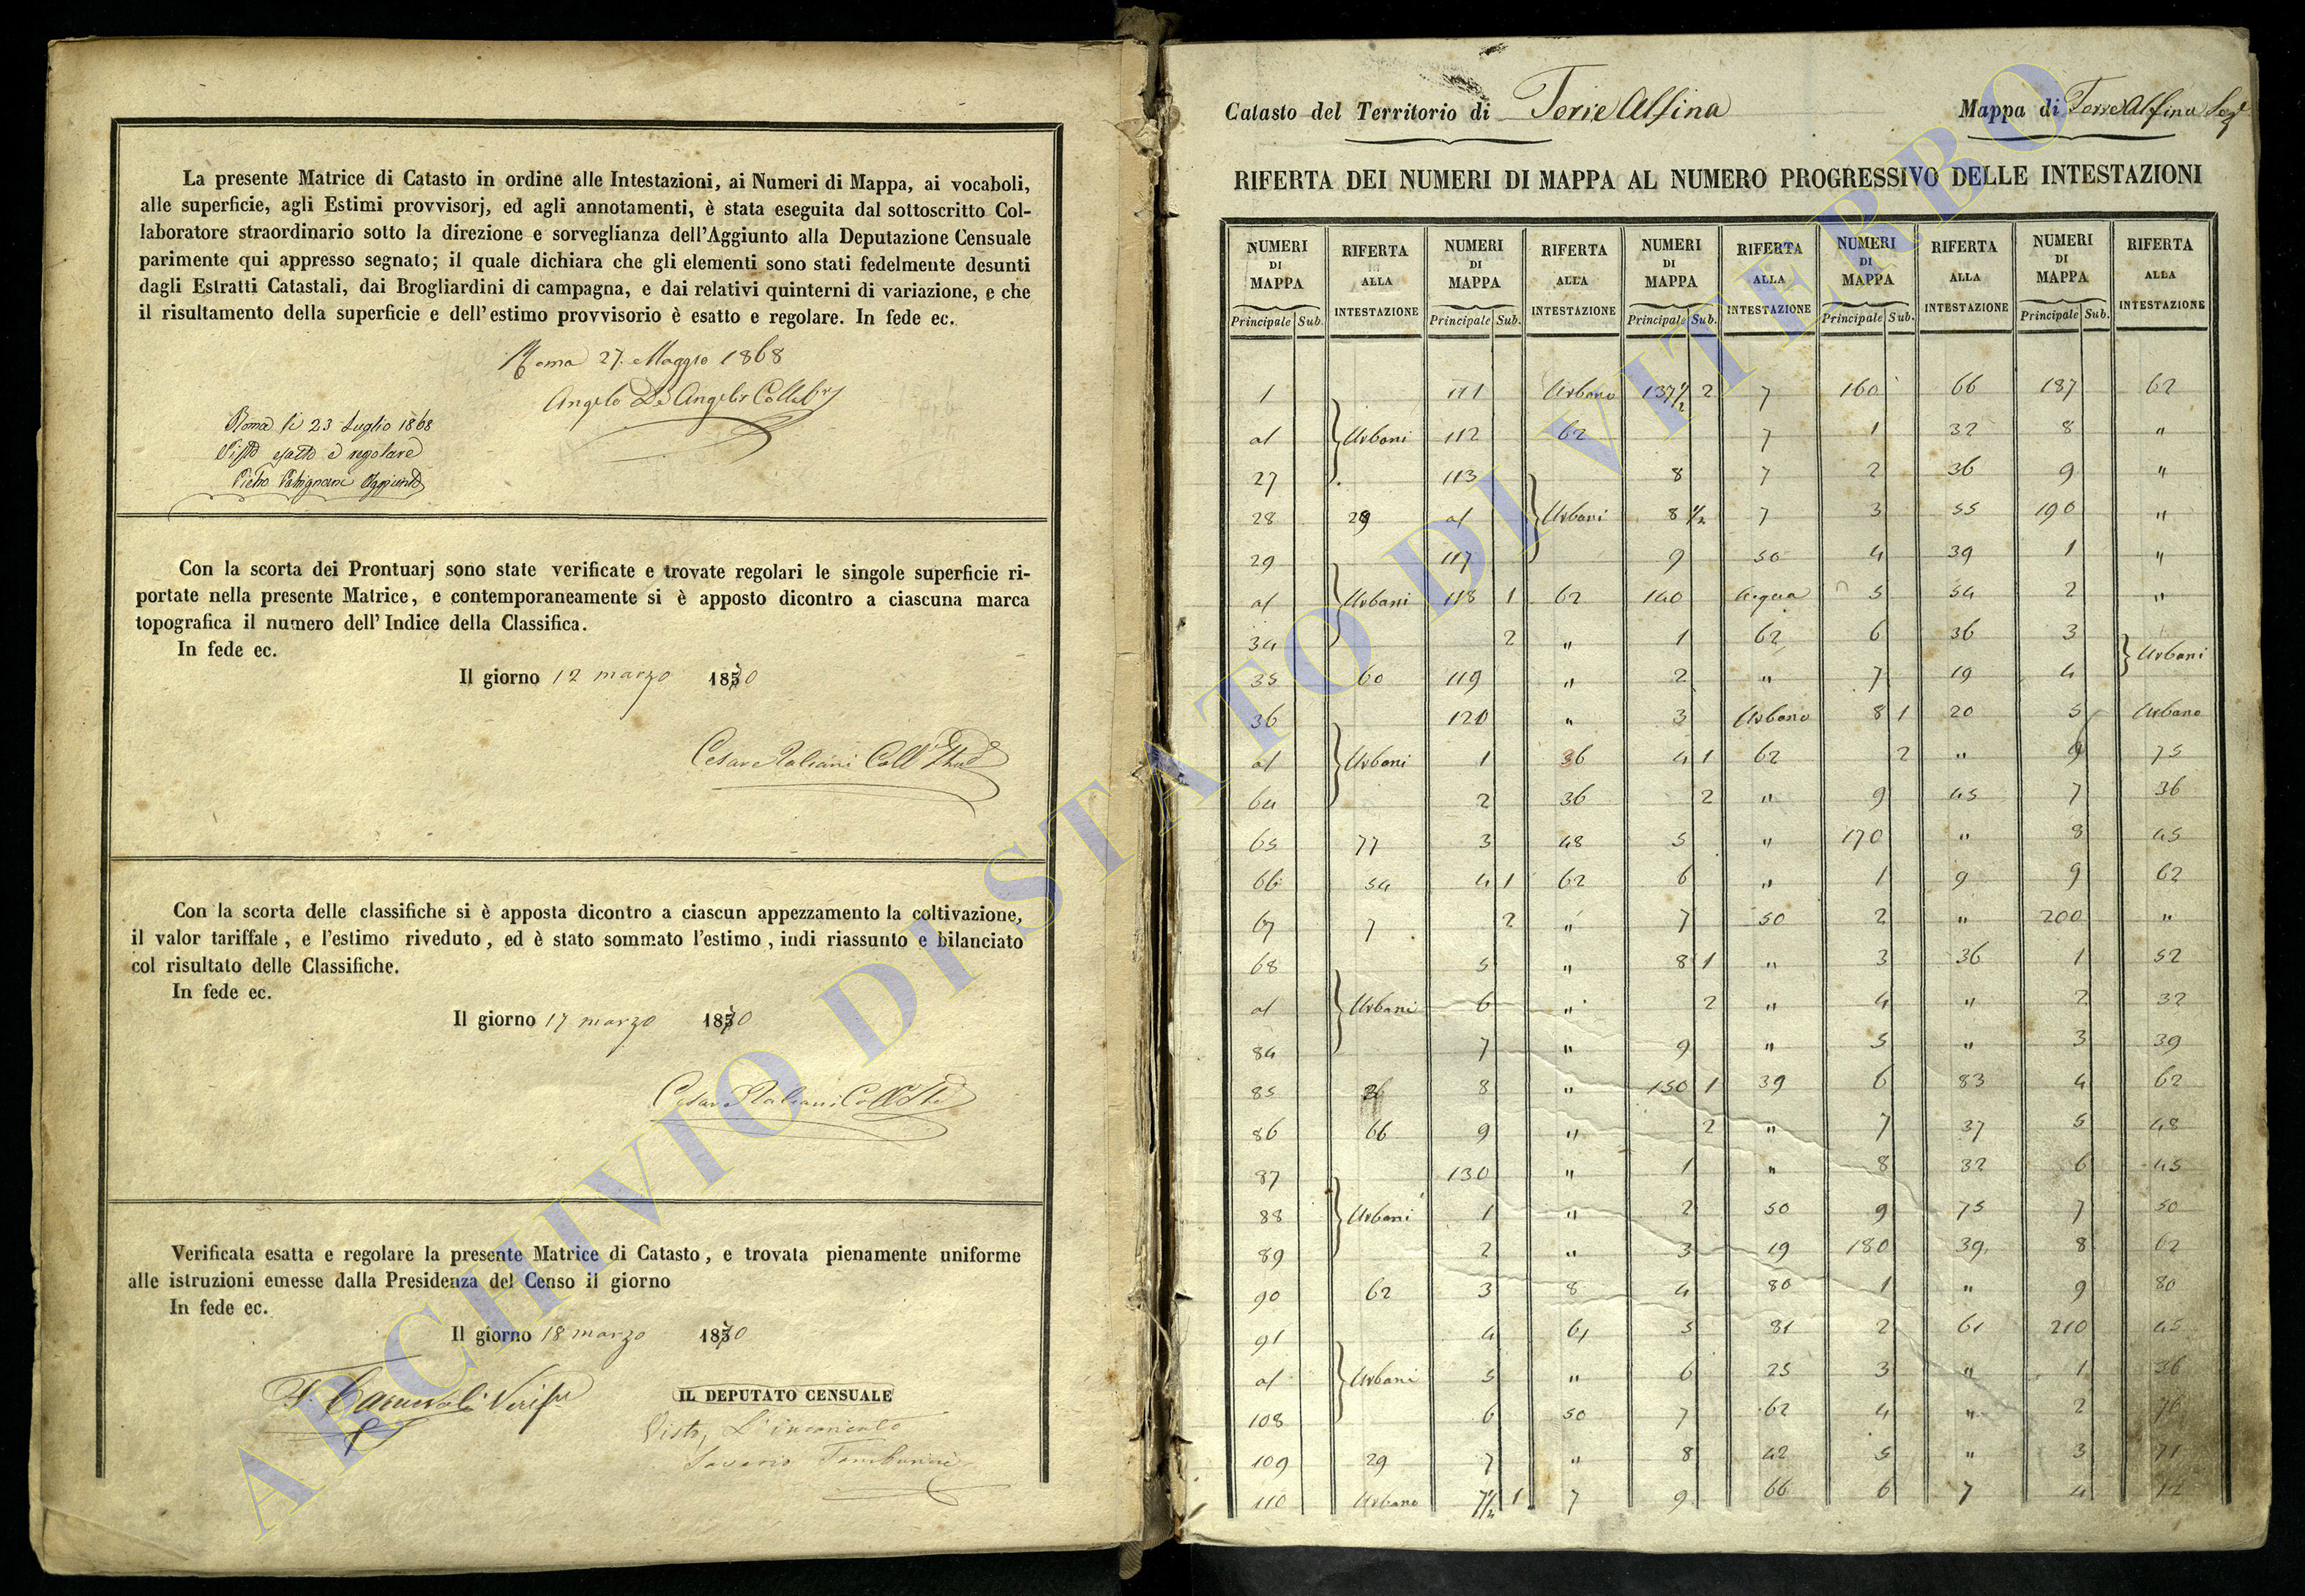 La presente Matrice di Catasto in ordine alle Intestazioni, ai Numeri di Mappa, ai vocaboli,
alle superficie, agli Estimi provvisorj, ed agli annotamenti, è stata eseguita dal sottoscritto Col-
laboratore straordinario sotto la direzione e sorveglianza dell'Aggiunto alla Deputazione Censuale
parimente qui appresso segnato; il quale dichiara che gli elementi sono stati fedelmente desunti
dagli Estratti Catastali, dai Brogliardini di campagna, e dai relativi quinterni di variazione, e che
il risultamento della superficie e dell'estimo provvisorio è esatto e regolare. In fede ec.
Roma 27. Maggio 1868
Angelo De Angelis
Roma li 23 Luglio 1868
Visto esatto e regolare
Pietro Aggiunto
Con la scorta dei Prontuarj sono state verificate e trovate regolari le singole superficie ri-
portate nella presente Matrice, e contemporaneamente si è apposto dicontro a ciascuna marca
topografica il numero dell'Indice della Classifica.
In fede ec.
Il giorno 12 marzo 1870
Cesare Italiani
Con la scorta delle classifiche si è apposta dicontro a ciascun appezzamento la coltivazione,
il valor tariffale, e l'estimo riveduto, ed è stato sommato l'estimo, indi riassunto e bilanciato
col risultato delle Classifiche.
In fede ec.
Il giorno 17 marzo 1870
Cesare Italiani
Verificata esatta e regolare la presente Matrice di Catasto, e trovata pienamente uniforme
alle istruzioni emesse dalla Presidenza del Censo il giorno
In fede ec.
Il giorno 18 marzo 1870
IL DEPUTATO CENSUALE
Visto, L'incaricato
Saverio Tamburini
Catasto del Territorio di Torre Alfina Mappa di Torre Alfina
RIFERTA DEI NUMERI DI MAPPA AL NUMERO PROGRESSIVO DELLE INTESTAZIONI
NUMERI DI MAPPA RIFERTA ALLA INTESTAZIONE NUMERI DI MAPPA RIFERTA ALLA INTESTAZIONE NUMERI DI MAPPA RIFERTA ALLA INTESTAZIONE NUMERI DI MAPPA RIFERTA ALLA INTESTAZIONE NUMERI DI MAPPA RIFERTA ALLA INTESTAZIONE
Principale Sub. Principale Sub. Principale Sub. Principale Sub. Principale Sub.
1 111 Urbano 137 1/2 2 7 160 66 187 62
al Urbani 112 62 7 1 32 8 "
27 113 8 7 2 36 9 "
28 29 al Urbani 8 1/2 7 3 55 190 "
29 117 9 50 4 39 1 "
al Urbani 118 1 62 140 Acqua 5 54 2 "
34 2 " 1 62 6 36 3 Urbani
35 60 119 " 2 " 7 19 4
36 120 " 3 Urbano 8 1 20 5 Urbano
al Urbani 1 36 4 1 62 2 " 75
64 2 36 2 " 9 45 7 36
65 77 3 48 5 " 170 " 8 45
66 54 4 1 62 6 " 1 9 9 62
67 7 2 " 7 50 2 " 200 "
68 5 " 8 1 " 3 36 1 52
al Urbani 6 " 2 " 4 " 2 32
84 7 " 9 " 5 " 3 39
85 8 " 150 1 39 6 83 4 62
86 66 9 " 2 " 7 37 5 48
87 130 " 1 " 8 32 6 45
88 Urbani 1 " 2 50 9 75 7 50
89 2 " 3 19 180 39 8 62
90 62 3 8 4 80 1 " 9 80
91 4 61 5 81 2 61 210 45
al Urbani 5 " 6 25 3 " 1 36
108 6 50 7 62 4 " 2 76
109 29 7 " 8 42 5 " 3 71
110 Urbano 7 1/2 1 7 9 66 6 7 4 12
ARCHIVIO DI STATO DI VITERBO